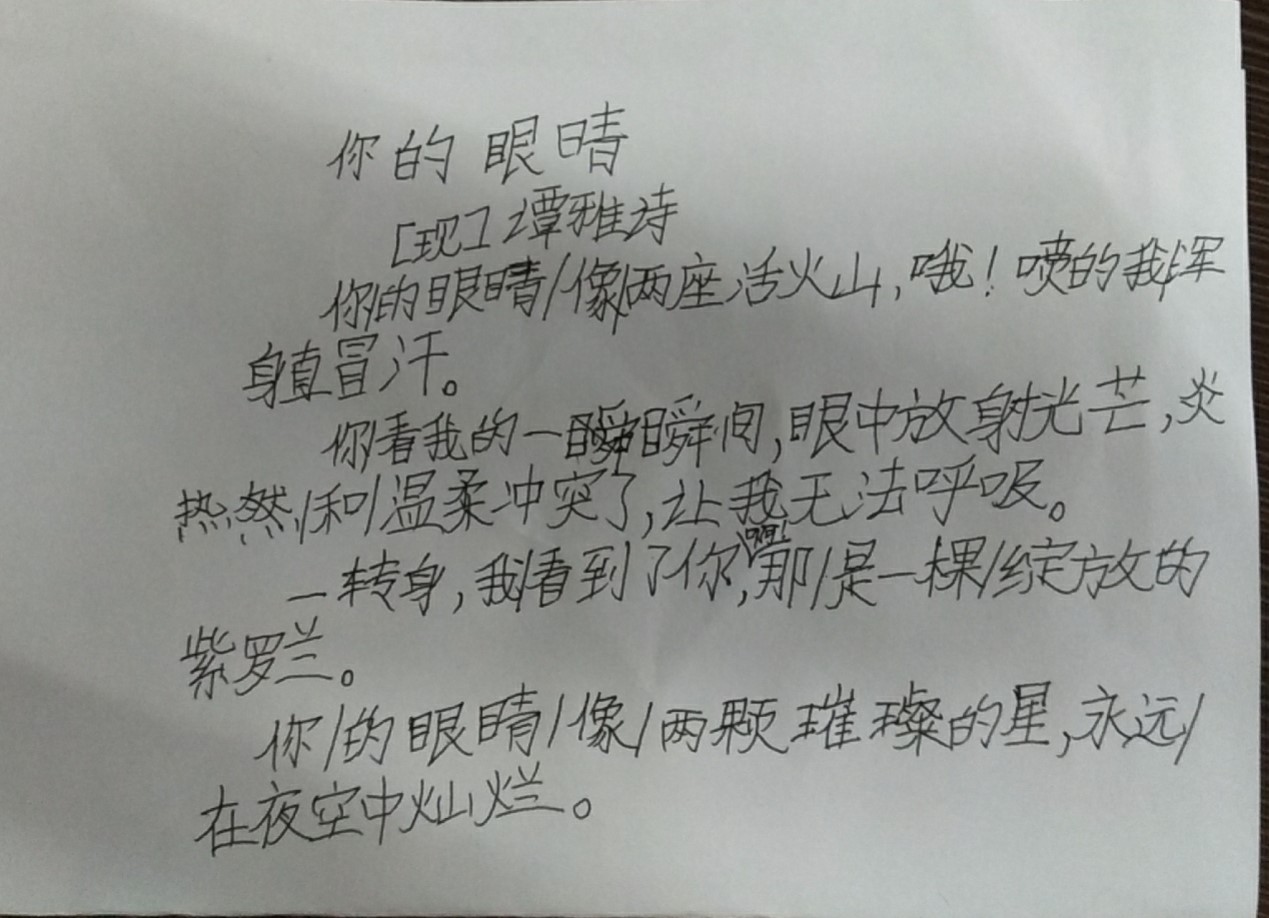 你的眼睛
[现]谭雅诗
你/的眼睛/像/两座活火山,哦!喷的我/浑
身直冒汗。
你/看我的一瞬瞬间,眼中放射光芒,炎
热,然,/和/温柔冲突了,让我无法呼吸。
一转身,我/看到了你,啊!那/是一棵/绽放的
紫罗兰。
你/的眼睛/像/两颗璀璨的星,永远/
在夜空中灿烂。